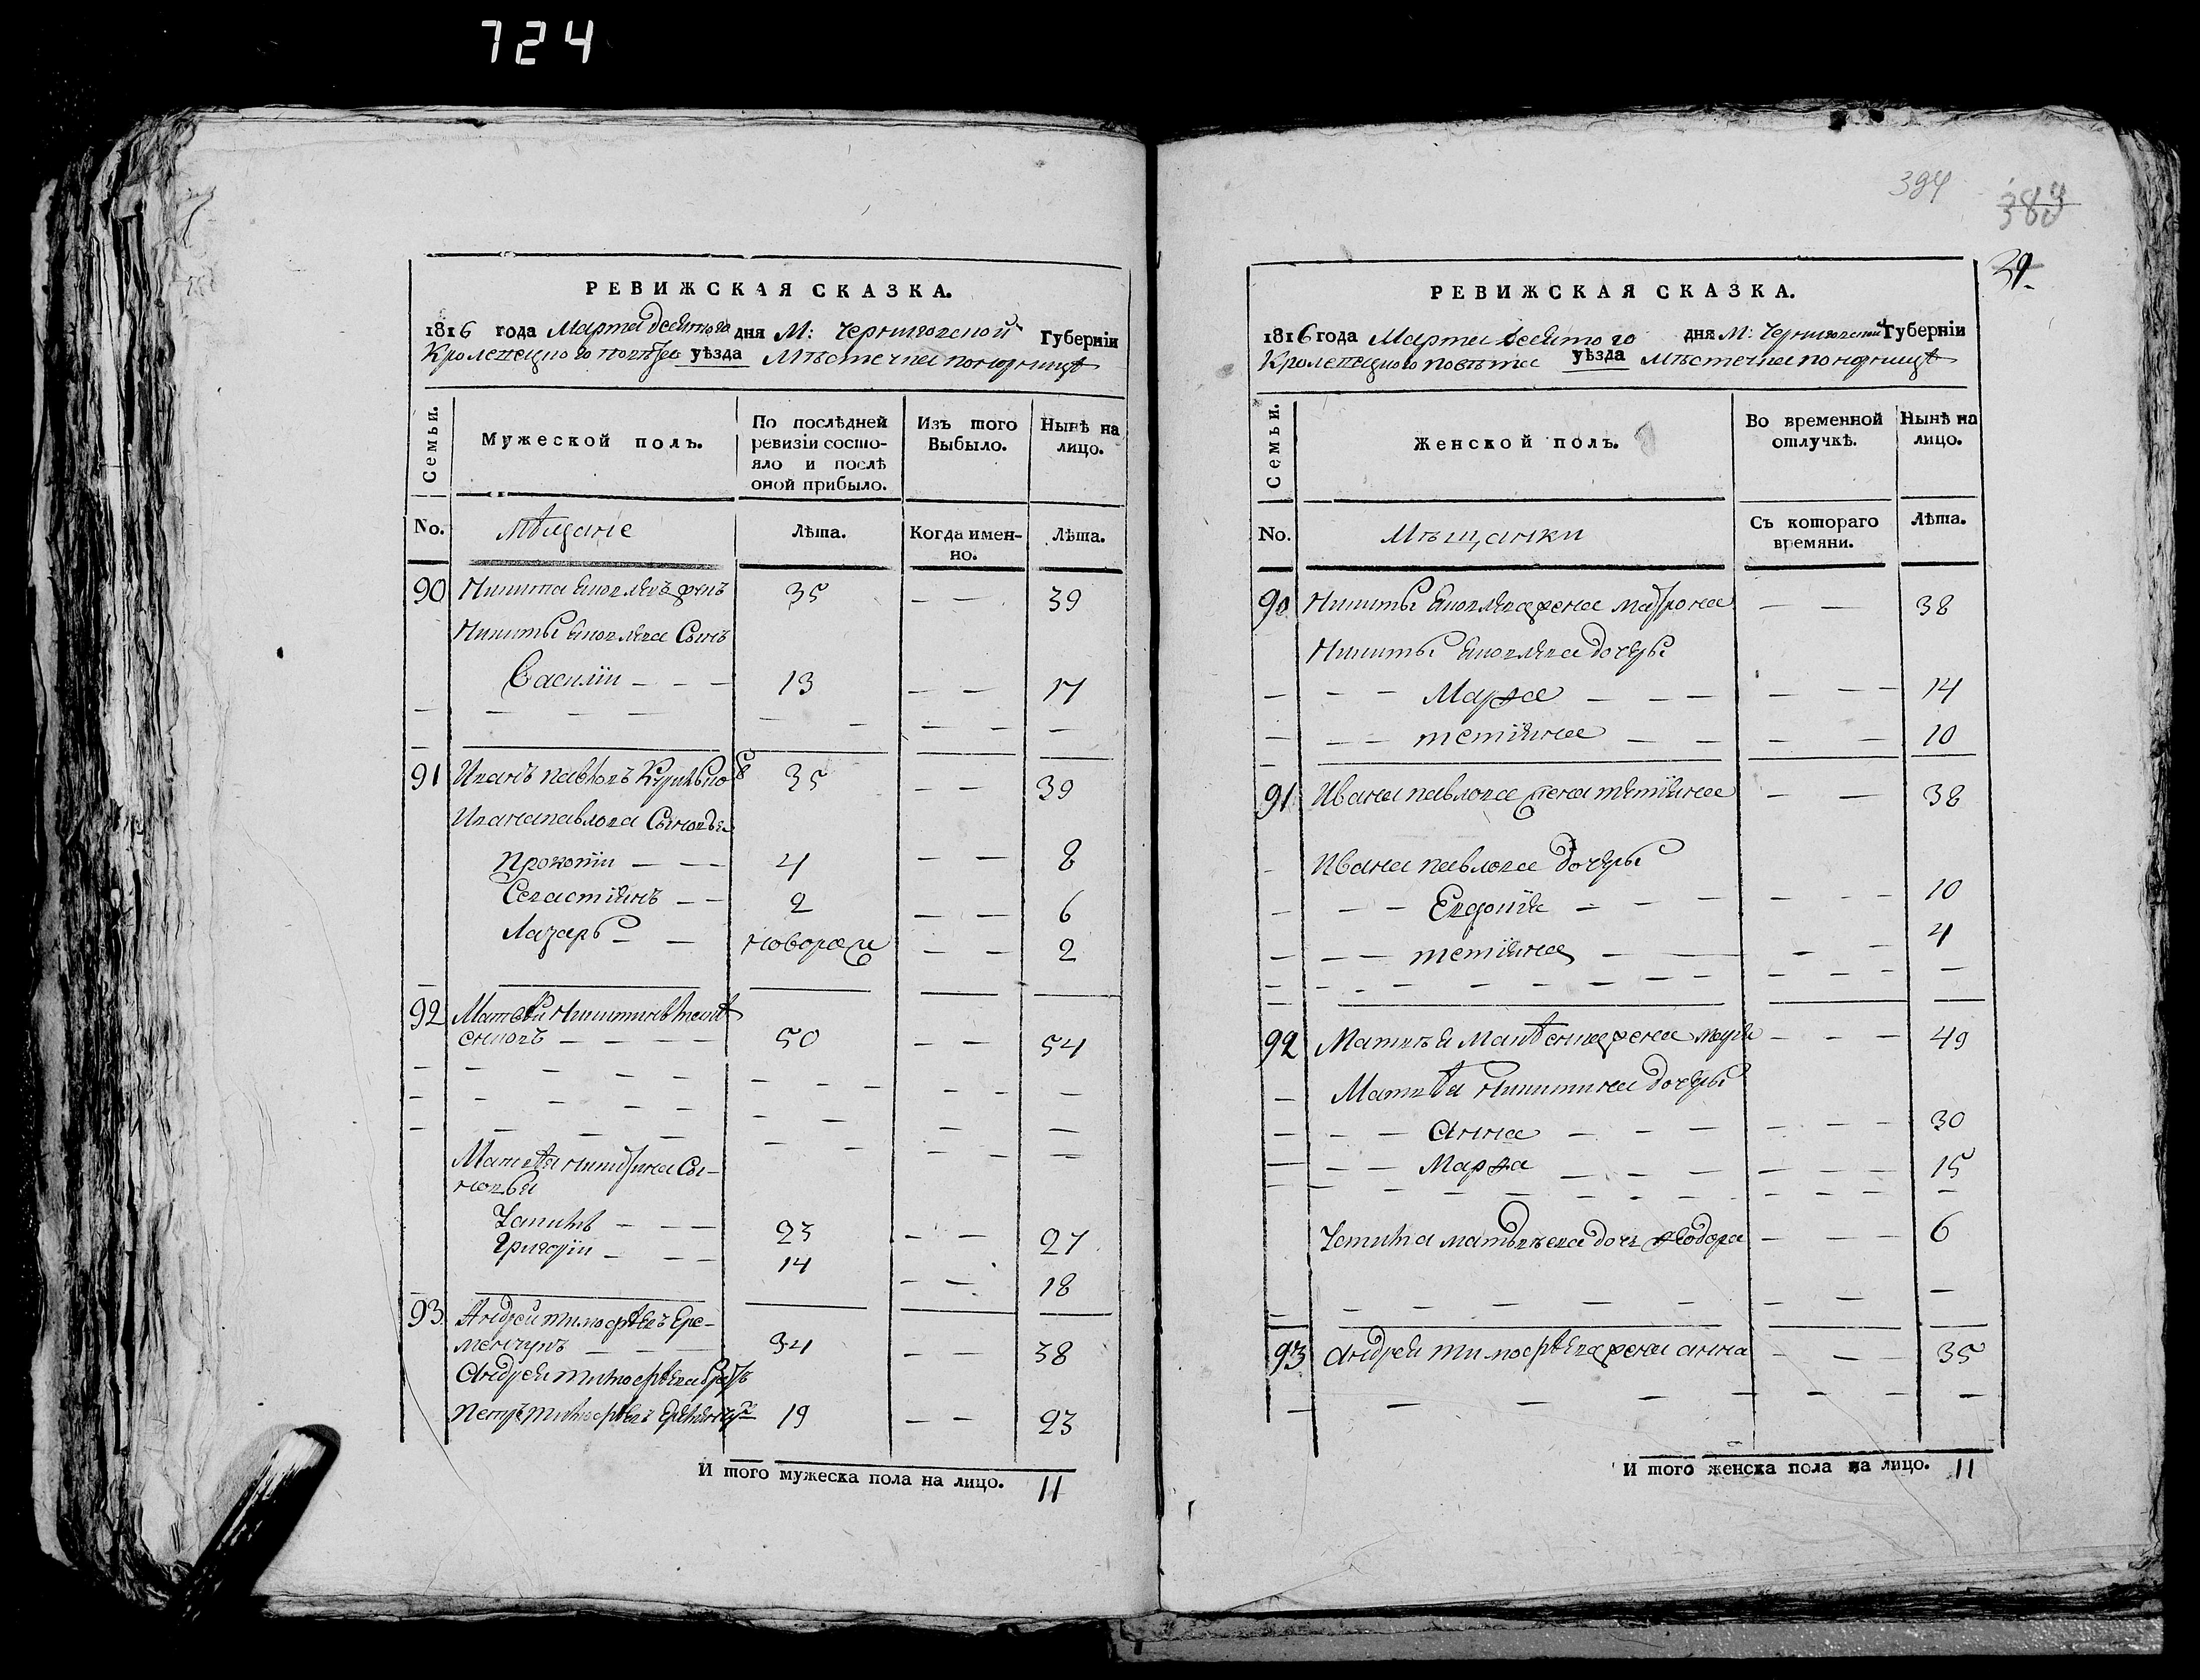 724
РЕВИЖСКАЯ СКАЗКА.
1816 года Марта десятого дня М: Черниговской Губернїи
Кролевецкого повѣта уѣзда Мѣстечка понорницѣ
Семьи. Мужеской полъ. По послѣдней ревизїи состояло и послѣ оной прибыло. Изъ того Выбыло. Нынѣ на лицо.
No. Мѣщане Лѣта. Когда именно. Лѣта.
90 Никита 35 — — 39
Никиты Сынъ
Василїи — — — 13 — — 17
91 Иванъ павловъ 35 — — 39
Ивана павлова Сыновья
Прокопїи — — — 4 — — 8
Севастїянъ — — 2 — — 6
Лазарь — — новорож — — 2
92 Матвѣи Никитинъ
50 — — 54
Матвѣя никитина Сы-
новья
23 — — 27
Григорїи — — — 14 — — 18
93 Андрей тимофѣевъ Ере-
менчукъ — — — 34 — — 38
Андрея тимофѣева братъ
Петръ тимофѣевъ 19 — — 23
И того мужеска пола на лицо. 11
394
389
29.
РЕВИЖСКАЯ СКАЗКА.
1816 года Марта десятого дня М: Черниговской Губернїи
Кролевецкого повѣта уѣзда Мѣстечка понорницѣ
Семьи. Женской полъ. Во временной отлучкѣ. Нынѣ на лицо.
No. Мѣщанки Съ котораго времяни. Лѣта.
90 Никиты жена матрона — — 38
Никиты дочеры
— — — Марѳа — — — — — — 14
— — — тетїяна — — — — 10
91 Ивана павлова жена тетїяна — — 38
Ивана павлова дочеры
— — — Евдокїя — — — — — — 10
— — — тетїяна — — — — 4
92 Матвѣя жена — — — 49
Матвѣя никитина дочеры
— — — Анна — — — — — — 30
— — — Марѳа — — — — — — 15
матвѣева дочь ѳеодора — — — 6
93 Андрея тимофѣева жена анна — — — 35
И того женска пола на лицо. 11